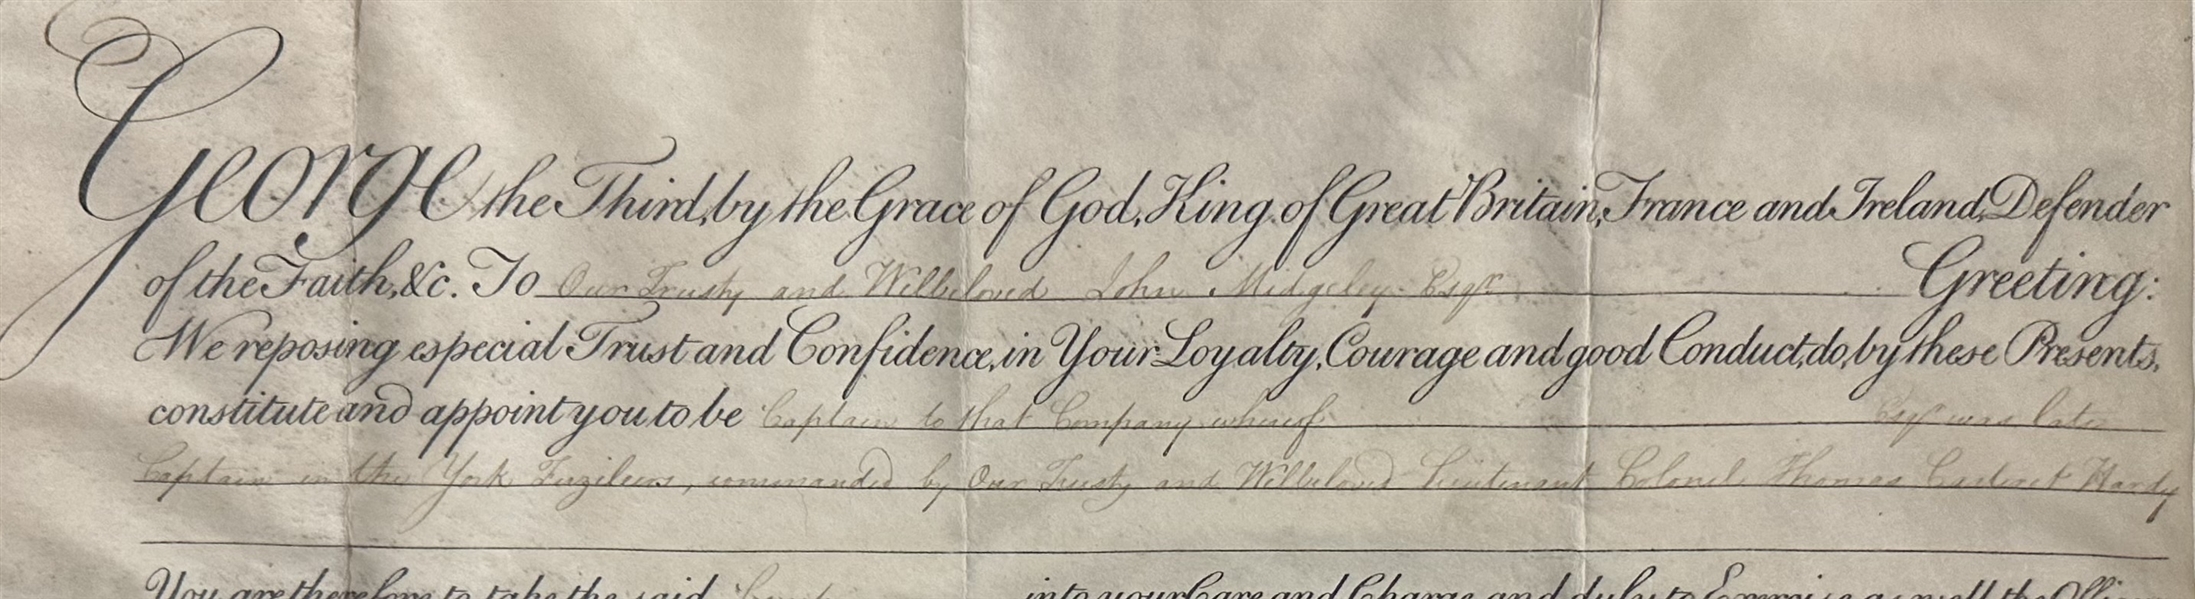 George the Third, by the Grace of God, King of Great Britain, France and Ireland, Defender
of the Faith, &c. To Our Trusty and Wellbeloved John Midgeley Esqr Greeting:
We reposing especial Trust and Confidence, in Your Loyalty, Courage and good Conduct, do, by these Presents,
constitute and appoint you to be Captain to that Company whereof Esqr was late
Captain in the York Fuzileers, commanded by Our Trusty and Wellbeloved Lieutenant Colonel Thomas Carteret Hardy
You are therefore to take the said into your Care and Charge and duly to Exercise as well the